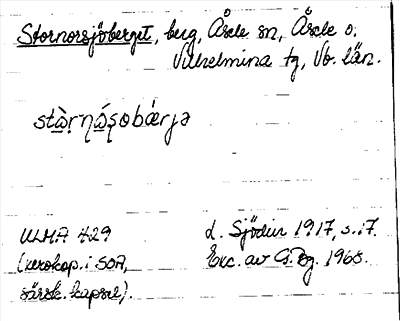 Stornorsjöberget, berg, Åsele sn, Åsele o.
Vilhelmina tg, Vb. län.
stàrná̱sobærjə
ULMA 429
(xerokop. i SOA,
särsk. kapsel).
d. Sjödin 1917, s. 17.
Exc. av G. Bg. 1968.